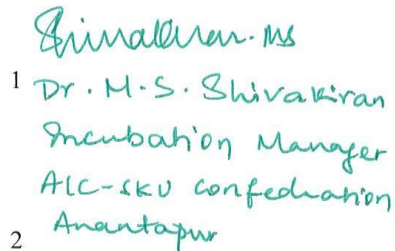 1 Dr. M. S. Shivakiran
Incubation Manager
AIC-SKU confedration
2 Anantapur